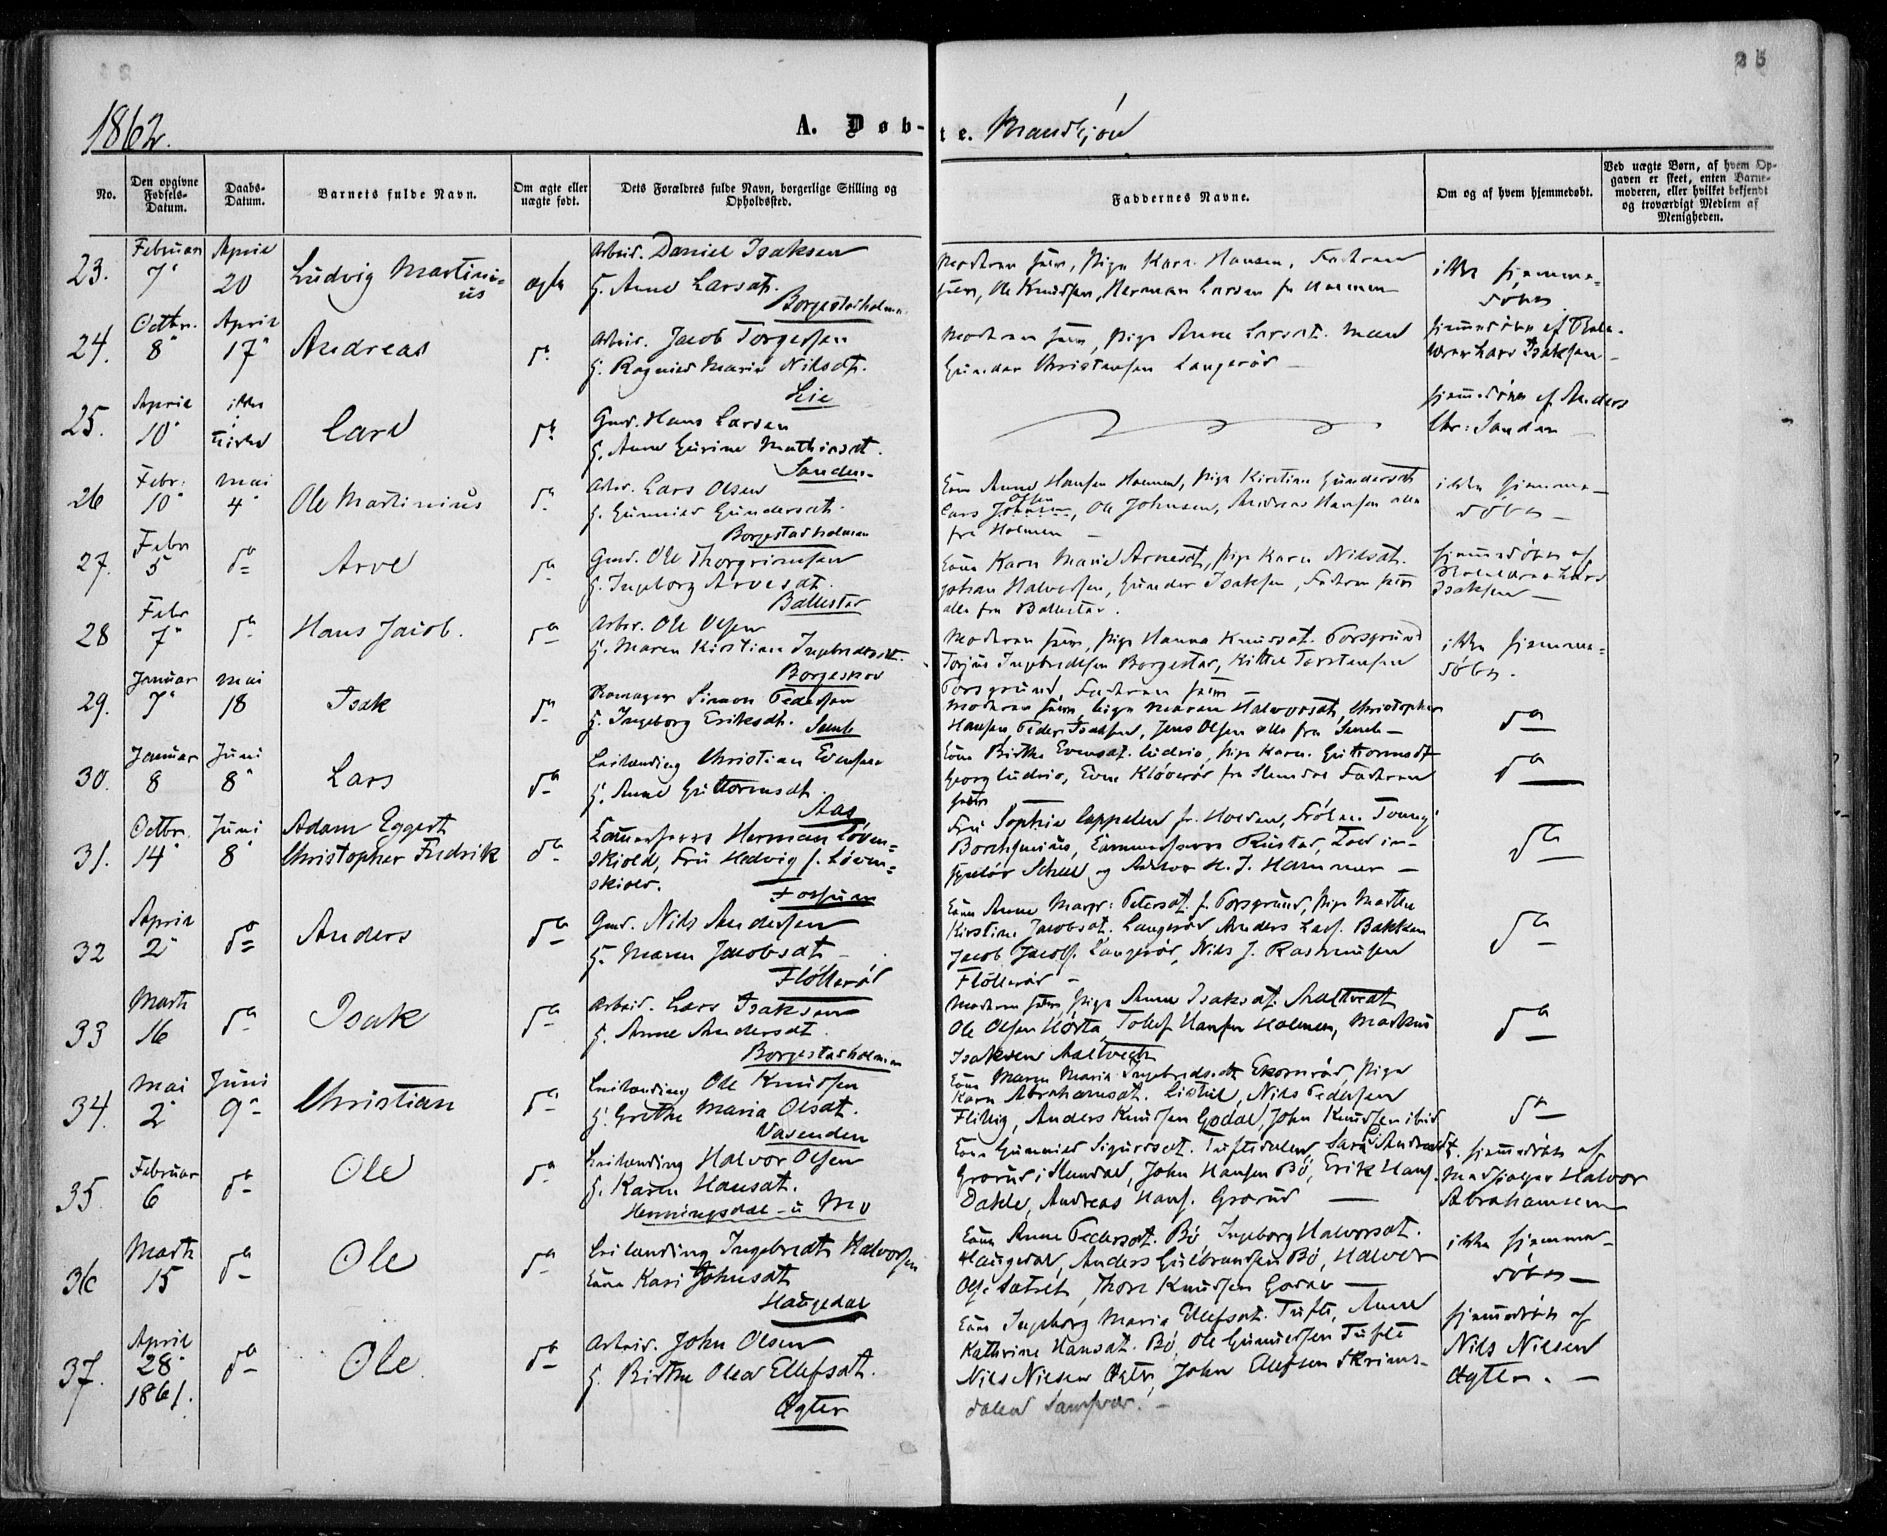 25
1862.
A. Døb-te. Mandkjøn
No.
Den opgivne Fødsels-Datum.
Daabs-Datum.
Barnets fulde Navn.
Om ægte eller uægte født.
Dets Forældres fulde Navn, borgerlige Stilling og Opholdssted.
Faddernes Navne.
Om og af hvem hjemmedøbt.
Ved uægte Børn, af hvem Opgaven er skeet, enten Barnemoderen, eller hvilket bekjendt og troværdigt Medlem af Menigheden.
23. Februar 7 April 20 Ludvig Martinius ægte
Arbeid. Daniel Isaksen
H. Anne Larsdt.
Borgestadholmen
Moderen selv, Pige Karn. Hansen, Faderen
selv, Ole Knudsen, Herman Larsen fr Holmen
ikke hjemme-
døbt
24. Octbr. 8 April 17 Andreas do
Arbeid. Jacob Torgersen
H. Ragnild Maria Nilsdt.
Lie
Moderen selv, Pige Anne Larsdt.
Gunder Christensen Langerød
hjemmedøbt af
Lars Isaksen
25. April 10 ikke i Kirke Carl do
Gmd. Hans Larsen
H. Anne Gurine Mathiasdt.
Sanden
hjemmedøbt af Anders
Chr: Sanden
26 Febr: 10 Mai 4 Ole Martinius do
Arbd. Lars Olsen
H. Gunnild Gundersdt.
Borgestadholmen
Kone Anne Hansen Holmen, Pige Kirstine Gundersdt
Lars Olsen, Ole Johnsen, Andreas Hansen alle
fra Holmen
ikke hjemme-
døbt
27. Febr 5 do Arve do
Gmd. Ole Thorgrimsen
H. Ingeborg Arvesdt.
Ballestad
Kone Karn Marie Arnesdt, Pige Karn Nilsdt.
Johan Halvorsen, Gunder Isaksen, Faderen selv
alle fra Ballestad.
hjemmedøbt af
Skolelærer Lars
Isaksen
28 Febr 7 do Hans Jacob. do
Arbd. Ole Olsen
H. Maren Kirstine Ingebretsdt.
Borgeskov
Moderen selv, Pige Hanna Knudsdt. Porsgrund
Torjus Ingebretsen Borgestad, Kittel Torstensen
Porsgrund, Faderen selv
ikke hjemme-
døbt.
29. Januar 7 Mai 18 Isak do
Simon Pedersen
H. Ingeborg Eriksdt. Semb
Moderen selv, Pige Maren Halvorsdt, Christopher
Hansen, Peder Isaksen, Jens Olsen alle fra Semb
do
30. Januar 8 Juni 8 Lars do
Leilænding Christian Evensen
H. Anne Guttormsdt.
Aas
Kone Birthe Evensdt. Ludvio, Pige Karn. Guttormsdt
Georg Ludvio, Even Kløverød fra Slemdal Faderen
selv
do
31. Octbr. 14 Juni 8 Adam Eggert
Christopher Fredrik do
Kammerherre Herman Løven-
skiold, Fru Hedvig f. Løven-
skiold.
Fossum
Fru Sophie Cappelen fr. Holden, Frøken Tonny
Borchsenius, Kammerherre Riistad, Told in-
spektør Scheel og Adv. H. J. Hammer
do
32 April 2 do Anders do
Gmd. Nils Andersen
H. Maren Jacobsdt
Fløtterød
Kone Anne Margr: Petersdt. f. Porsgrund, Pige Marthe
Kirstine Jacobsdt. Langerød Anders Lars. Bakken
Jacob Jacobs. Langerød, Nils J. Rasmussen
Flötterød
do
33 Marts 16 do Isak do
Arbeid. Lars Isaksen
H. Anne Andersdt.
Borgestadholmen
Moderen selv, Pige Anne Isaksdt. Aaltvedt
Ole Olsen Hörta, Tollef Hansen Holmen, Markus
Isaksen Aaltvedt
do
34. Mai 2 Juni 9 Christian do
Leilænding Ole Knudsen
H. Grethe Maria Olsdt.
Vasenden
Kone Maren Maria Ingebretsdt Ekornrød, Pige
Karn Abrahamsdt. Listul, Nils Pedersen
Flittig, Anders Knudsen Godal, John Knudsen ibid
do
35. Februar 6 do Ole do
Leilænding Halvor Olsen
H. Karen Hansdt.
Henningsdal u Mo
Kone Gunnild Sigurdsdt. Tuftedalen, Sara Andersdt.
Grorud i Slemdal, John Hansen Bö, Erik Hans.
Dahle, Andreas Hans. Grorud
hjemmedøbt af
Medhjælper Halvor
Abrahamsen
36 Marts 15 do Ole do
Leilænding Ingebredt Halvorsen
Kone Kari Johnsdt
Haugedal
Kone Anne Pedersdt. Bö Ingeborg Halvorsdt.
Haugedal, Anders Gulbrandsen Bö, Halvor
Ols. Sætret, Thore Knudsen Godal
ikke hjemme-
døbt
37. April 28 1861. do Ole do
Arbeid. John Olsen
H. Birthe Olea Ellefsdt.
Øgter
Kone Ingeborg Maria Ellefsdt. Tufte, Anne
Kathrine Hansdt. Bö, Ole Gundersen Tufte
Nils Nielsen Øgter, John Ellefsen Skrims-
dalen Sandsvær.
hjemmedøbt af
Nils Nielsen
Øgter.